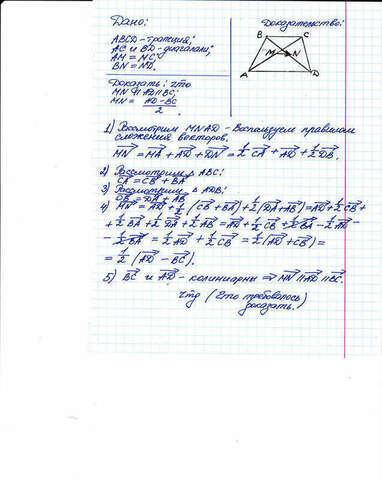 Дано:
ABCD - трапеция;
AC и BD - диагонали;
AM = MC;
BN = ND.
Доказать: что
MN ∥ AD ∥ BC;
MN = AD - BC
2
Доказательство:
B C
M N
A D
1) Рассмотрим MNAD - Воспользуем правилом
сложения векторов.
MN = MA + AD + DN = ½ CA + AD + ½ DB.
2) Рассмотрим △ ABC:
CA = CB + BA
3) Рассмотрим △ ADB:
DB = DA + AB
4) MN = AD + ½ (CB + BA) + ½ (DA + AB) = AD + ½ CB +
+ ½ BA + ½ DA + ½ AB = AD + ½ CB + ½ BA - ½ AD -
- ½ BA = ½ AD + ½ CB = ½ (AD + CB) =
= ½ (AD - BC).
5) BC и AD - колиниарны ⇒ MN ∥ AD ∥ BC.
чтд (Это требовалось
доказать.)